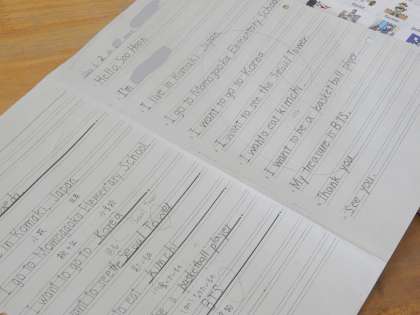 Hello Soo Hoon.
I'm
I live in Komaki, Japan.
I go to Momogaoka Elementary School.
I want to go to Korea.
I want to see the Seoul Tower.
I want to eat kimchi.
I want to be a basketball player.
My treasure is BTS.
Thank you.
See you.
in Komaki, Japan
I go to Momogaoka Elementary School
I want to go to Korea
want to see the Seoul Tower
to eat kimchi
be a basketball player
BTS